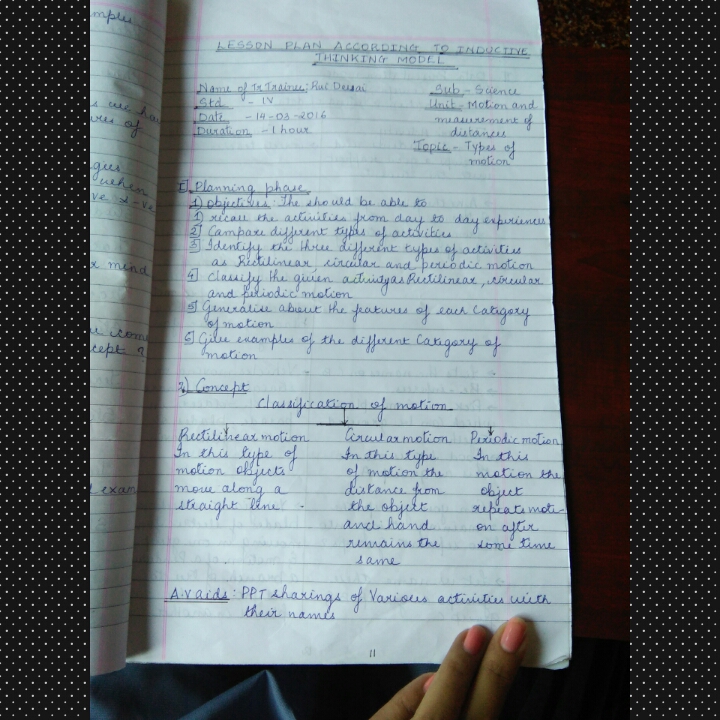 LESSON PLAN ACCORDING TO INDUCTIVE
THINKING MODEL
Name of Tr. Trainee: Desai
Std - IV
Date - 14-03-2016
Duration - 1 hour
Sub - Science
Unit - Motion and
measurement of
distances
Topic - Types of
motion
I] Planning phase
1) Objectives: The should be able to
1) recall the activities from day to day experiences
2] Compare different types of activities
3] Identify the three different types of activities
as Rectilinear, circular and periodic motion
4] Classify the given as Rectilinear, circular
and periodic motion
5] Generalise about the features of each Category
of motion
6] Give examples of the different Category of
motion
2) Concept
Classification of motion
Rectilinear motion
In this type of
motion objects
move along a
straight line.
Circular motion
In this type
of motion the
distance from
the object
and hand
remains the
same
Periodic motion
In this
motion the
object
repeats moti-
on after
some time
A.V aids: PPT sharings of Various activities with
their names
11